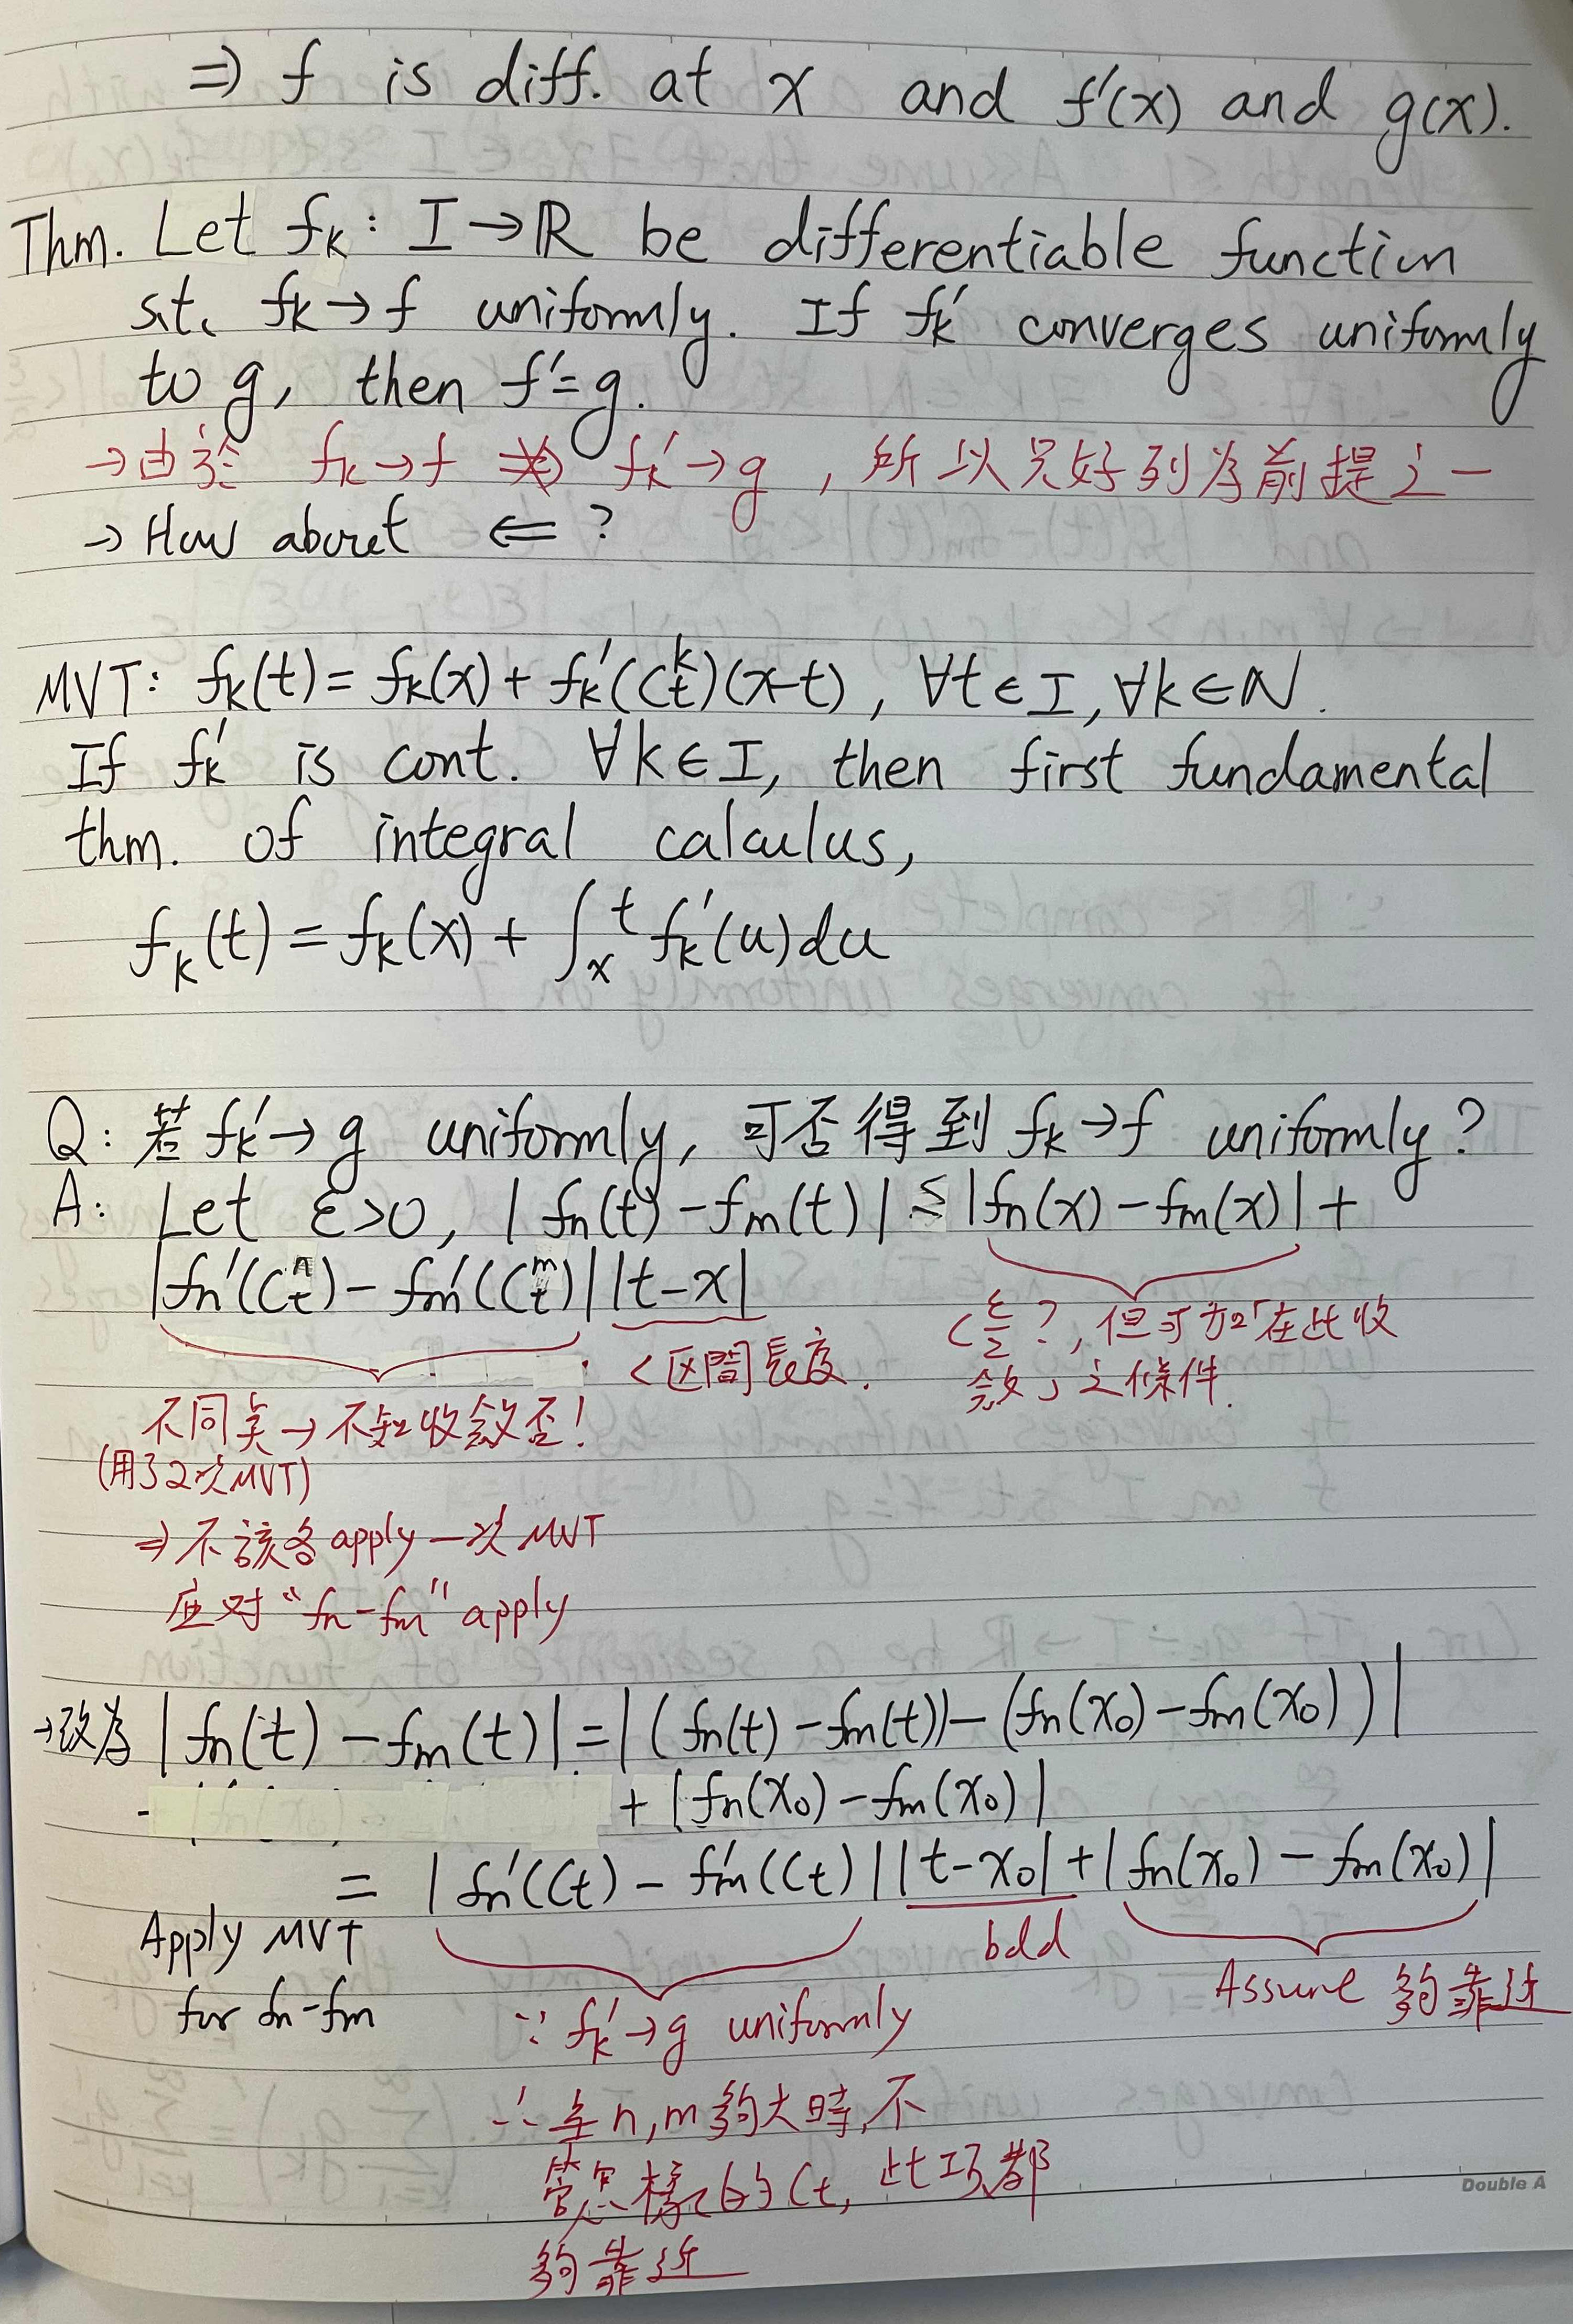 ⇒ f is diff. at x and f'(x) and g(x).
Thm. Let fk : I→ℝ be differentiable function
s.t. fk→f uniformly. If fk' converges uniformly
to g, then f'=g.
→由於 fk→f ⇏ fk'→g , 所以只好列為前提之一
→ How about ⇐ ?
MVT: fk(t) = fk(x) + fk'(Ct^k)(x-t), ∀t∈I, ∀k∈ℕ.
If fk' is cont. ∀k∈I, then first fundamental
thm. of integral calculus,
fk(t) = fk(x) + ∫x^t fk'(u)du
Q: 若 fk'→g uniformly, 可否得到 fk→f uniformly?
A: Let ε>0, |fn(t)-fm(t)| ≤ |fn(x)-fm(x)| +
|fn'(Ct^n) - fm'(Ct^m)||t-x|
<ε/2?, 但可加「在此收
斂」之條件.
<区間長度.
不同点→不知收斂否!
(用了2次MVT)
⇒不該各apply一次MVT
应对“fn-fm”apply
→改為 |fn(t)-fm(t)| = |(fn(t)-fm(t))-(fn(x0)-fm(x0))|
+ |fn(x0)-fm(x0)|
= |fn'(Ct) - fm'(Ct)||t-x0| + |fn(x0)-fm(x0)|
Apply MVT
for fn-fm
bdd
Assume 夠靠近
∵ fk'→g uniformly
∴ 在n,m夠大時,不
管怎樣的Ct, 此項都
夠靠近
Double A